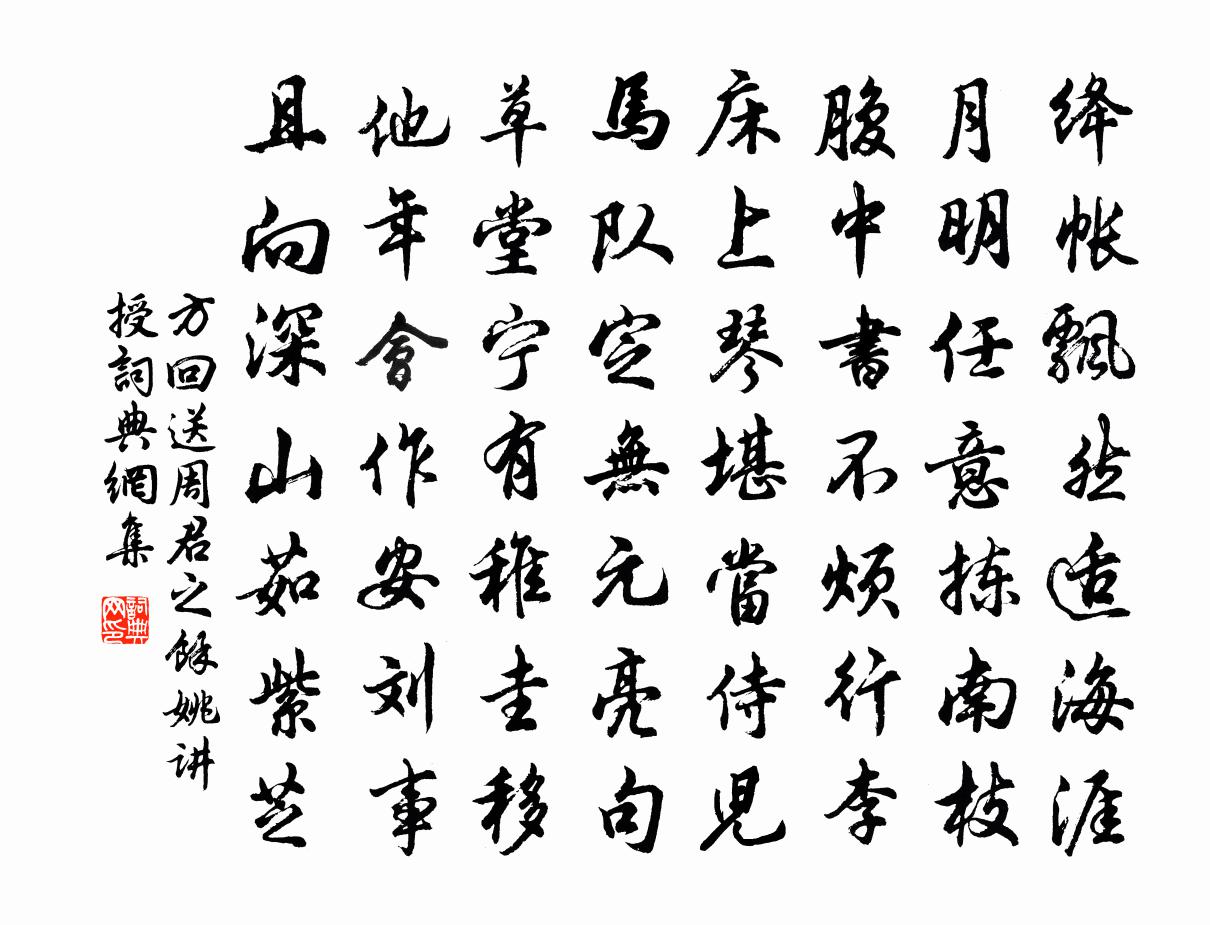 絳帐飄然适海涯
月明任意拣南枝
腹中書不烦行李
床上琴堪當侍児
馬队定無元亮句
草堂宁有稚圭移
他年會作安刘事
且向深山茹紫芝
方回送周君之餘姚讲
授詞典網集
詞典网印